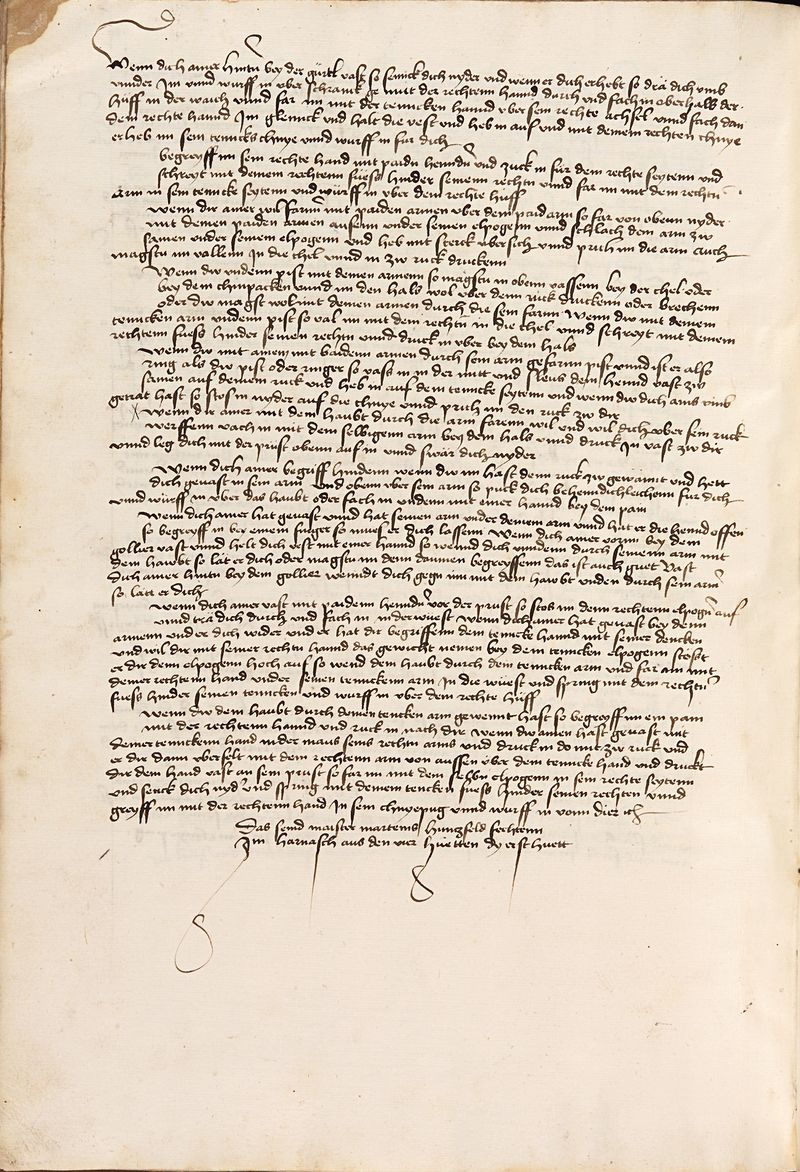 Wenn dich ainer hintn bey der gürtl vast so sennck dich nyder vnd wenn er dich erhebt so drä dich vmb
vnnder Im vnnd würff in vber schranck ge mit der rechtenn hannd durch vnd fach in oberhalb der
hüff in der waich vnnd far im mit der tenncken hannd vber sein rechte achsel vnnd fach dan
dein rechte hannd Im glennck vnd halt die vest vnd heb in auf vnd mit deinem rechten chnye
er heb im sein tenncks chnye vnnd würff in für dich
begreyff im sein rechte hand mit paidn henndn vnd zuck in für dein rechte seytenn vnd
schreyt mit deinem rechtenn füess hinder seinenn rechtn vnnd far im mit dem rechtn
Arm in sein tenncke seytenn vnd würff in vber dein rechte hüff
Wenn dir ainer wil farnn mit paiden armen vber dein paid arm so far von obenn nyder
mit deinen paiden armen aussenn vnder seinen elpogenn vnnd schlach dein arm zw
samen vnder seinem elpogenn vnd heb mit sterck vbersich vnnd prich im die arm Auch
magstu im vallenn In die chel vnnd in zw ruck druckenn
Wenn dw vndenn pist mit deinen armenn so magstu in obenn vassenn bey der chel oder
bey dem chinpacken vnnd im den hals wol vber denn ruck druckenn oder brechenn
oder dw magst wol mit deinen armen durch die sein farnn Wenn dw mit deinem
tenncken arm vndenn pist so val im mit dem rechtn in die chel vnnd schreyt mit deinem
rechtenn füess hinder seinen rechtn vnnd druck in vber bey dem hals
Wenn dw mit ainem mit baidenn armen durch sein arm gefarnn pist vnnd ist er also
ring als dw pist oder ringer so vass in in der mitt vnd sleus dein hennd vast zw
samen auf deinem ruck vnd heb in auf dein tenncke seytenn vnd wenn dw dich ains
getrat hast so stos in nyder auf die chnye vnnd prich im den ruck zw dir
Wenn dir ainer mit dem haubt durch die arm farenn wil vnd wil dich vber sein ruck
werffenn vach in mit dem selbigenn arm bey dem hals vnnd druck In vast zw dir
vnnd leg dich mit der prust obenn auf in vnnd swär dich nyder
Wenn dich ainer begriff hindenn wenn dw im hast denn ruck zw gewannt vnd hett
dich gevast in sein arm vnd obenn vber sein arm so puck dich behenndichleichenn für dich
vnnd würff in vber das haubt oder fach in vndenn mit ainer hannd bey dem pain
Wenn dich ainer hat gevast vnnd hat seinen arm vnder deinem arm vnnd hat er die hennd offen
so begreyff in bey einem finger so mues er dich lassenn Wenn dich ainer vorn bey dem
gollier vast vnnd helt dich vest mit einer hannd so wennd dich vnndenn durch seinenn arm mit
dem haubt so lät er dich oder magstu im denn daumen begreyffenn das ist auch guet Vast
dich ainer hintn bey dem gollier wenndt dich gegn im mit dem haubt vnden durch sein arm
so lätt er dich
Wenn dich ainer vast mit paidenn henndn vor der prust so stos im denn rechtenn elpogn auf
vnnd trä dich durch vnd fach in in der wüest Wenn dich ainer hat gevast bey denn
armenn vnd er dich wider vnd er hat dir begriffenn dein tenncke hannd mit seiner dencken
vnd wil dir mit seiner rechtn hannd das gewicht nemen bey dem tenncken elpogenn stosst
er dir denn elpogenn hoch auf so wend dein haubt durch dein tenncken arm vnd far im mit
deiner rechtenn hand vnder seinen tennckenn arm In die wüest vnd spring mit dem rechtn
fuess hinder seinen tenncken vnd würff in vber dein rechte hüff
Wenn dw dein haubt durch deinen tencken arm gewennt hast so begreyff im ein pain
mit der rechtenn hannd vnd ruck in nach dir Wenn dw ainen hast gevast mit
deiner tennckenn hand in der maus seins rechtn arms vnd druck in do mit zw ruck vnd
er dir dann vberfelt mit dem rechtenn arm von aussen vber dein tencke hand vnd druckt
dir dein hand vast an sein prust so far im mit dem selbn elpogenn in sein rechte seytenn
vnd senck dich nyd vnd spring mit deinem tencken fuess hinder seinen rechten vnnd
greyff im mit der rechtenn hand In sein chnyepug vnnd würff in vonn dier
Das sennd maister marteins Hunczfeld fechtenn
Im harnasch aus den vier Huetten dy erst huett